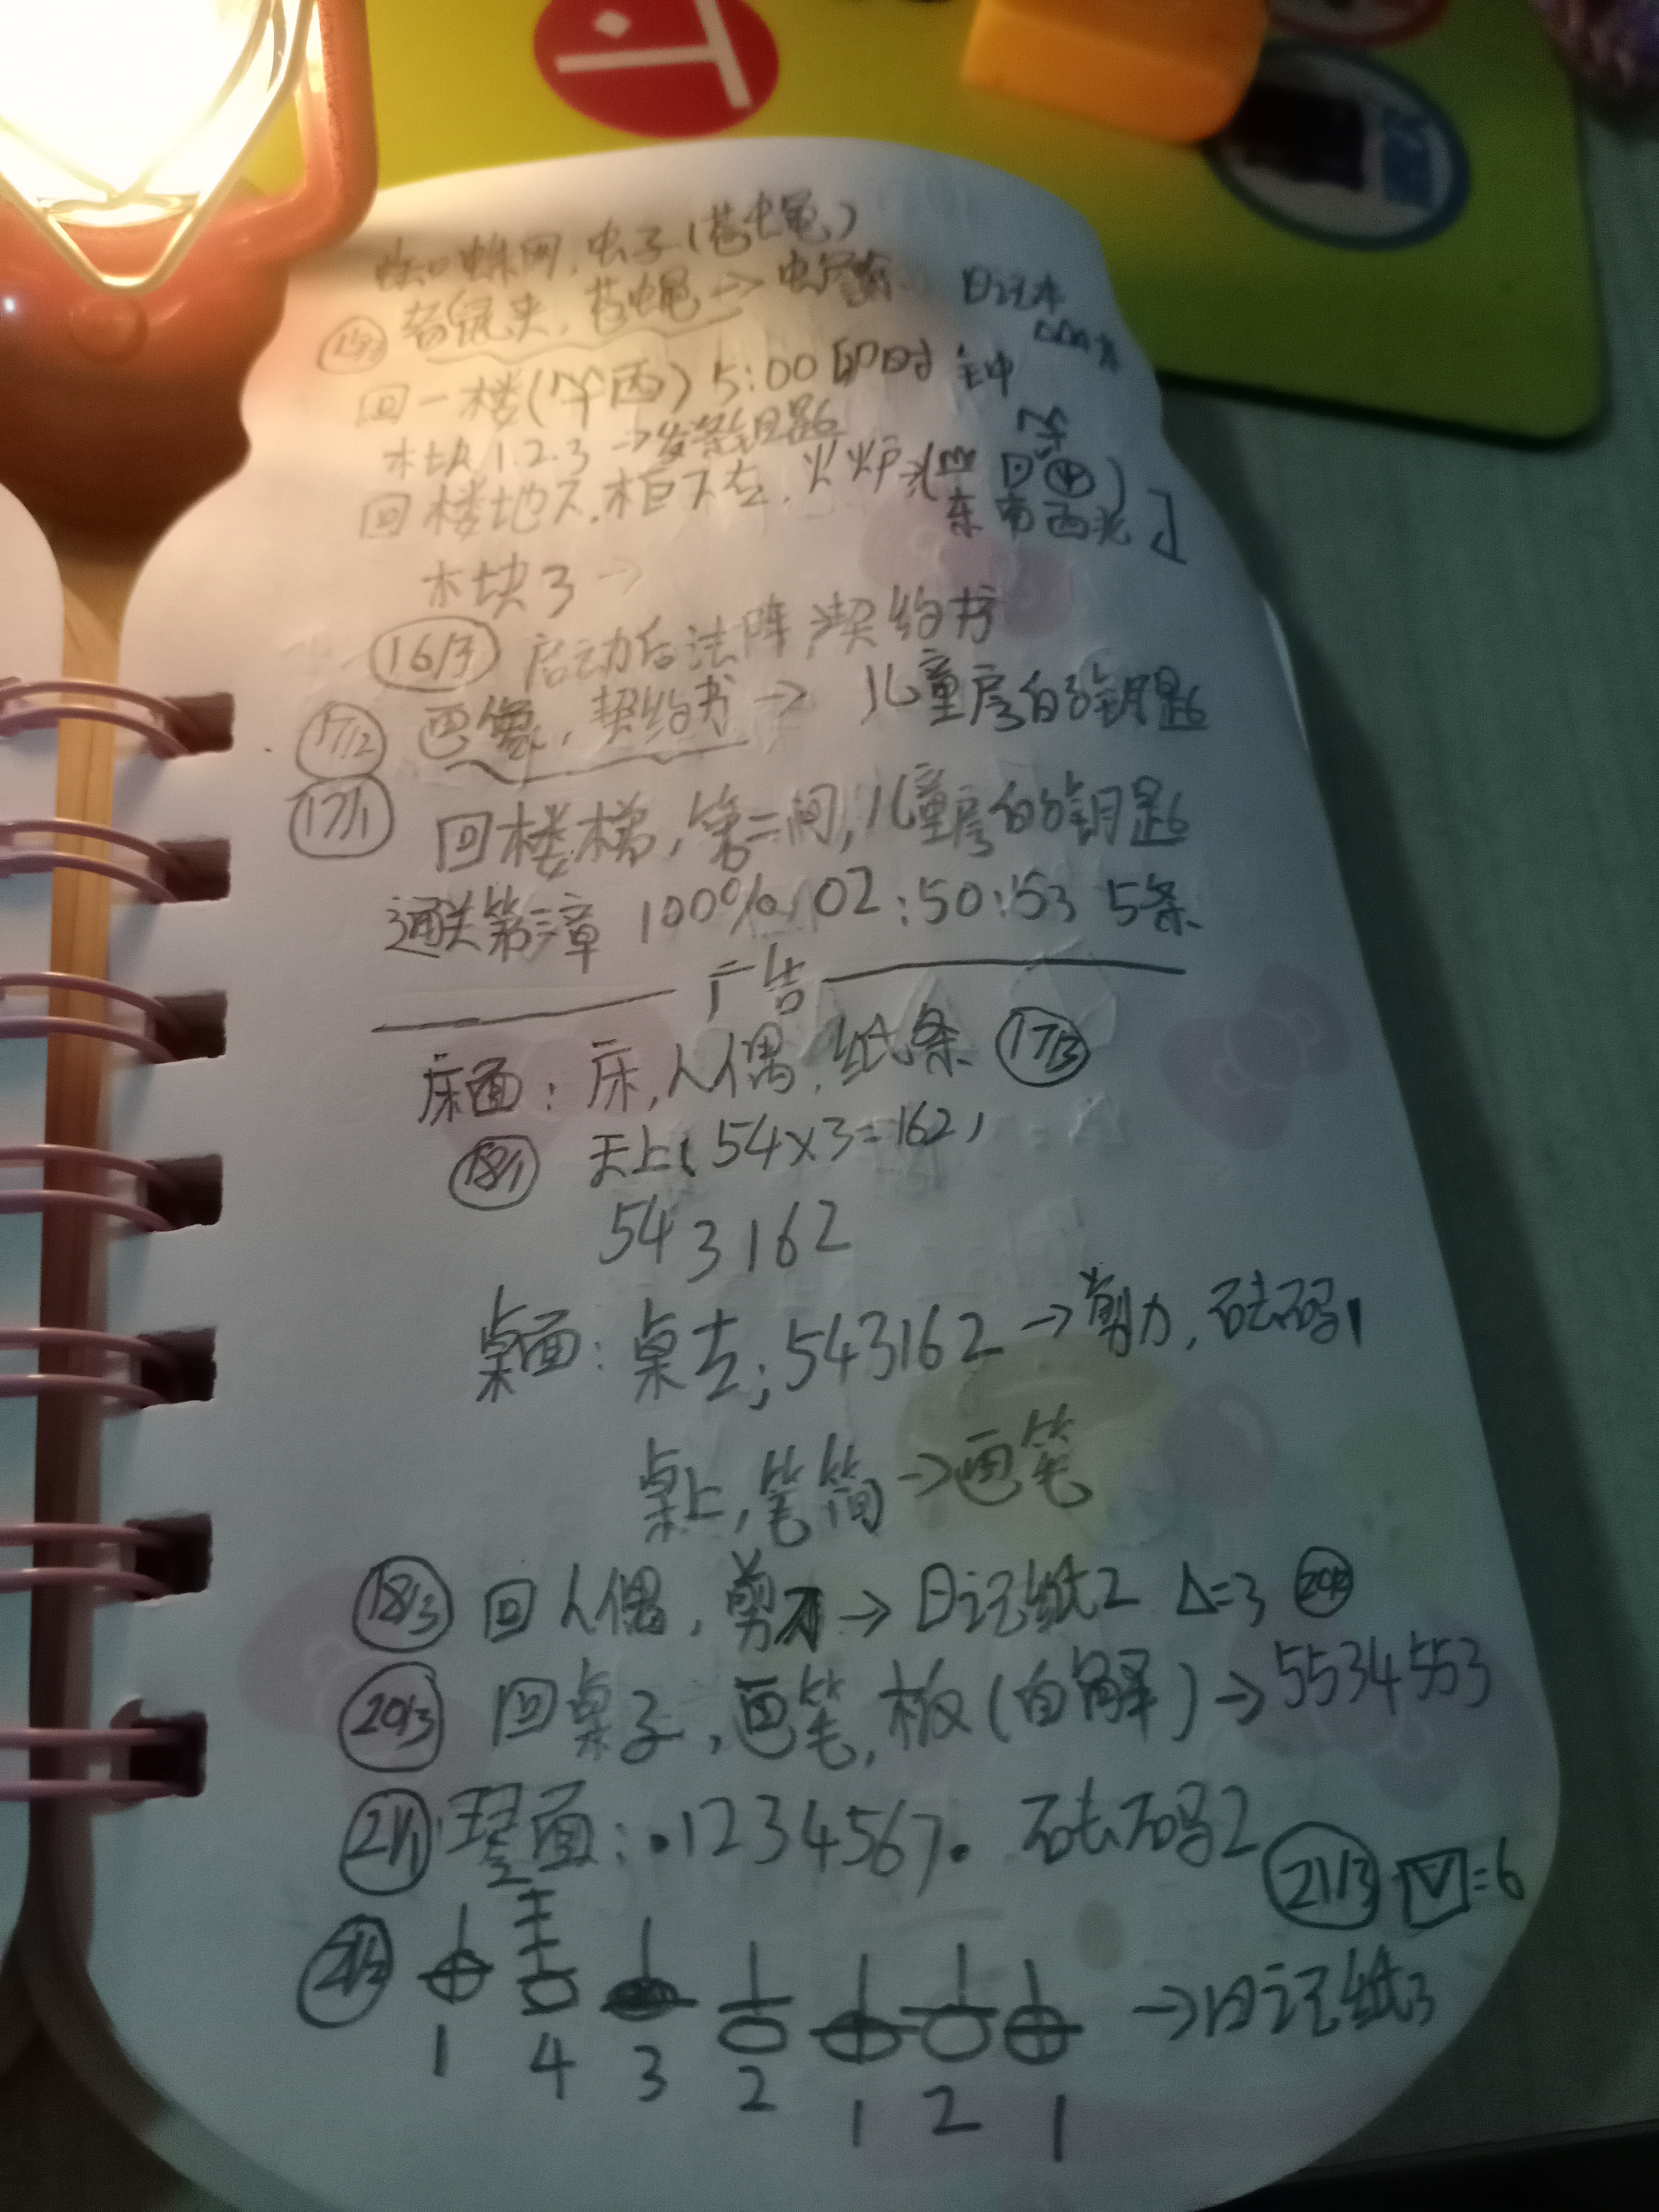 蜘蛛网,虫子(苍蝇)
15/3 老鼠夹,苍蝇→ 日记本
回一楼(爷画) 5:00 即时钟
木块1.2.3 →发条钥匙
回楼地下,柜下左,火炉
东南西北
木块3→
16/3 启动后法阵,契约书
17/2 巴象,契约书→ 儿童房的钥匙
17/1 回楼梯,第二间,儿童房的钥匙
通关第三章 100% 02:50:53 5条
广告
床面:床,人偶,纸条 17/3
18/1 天上:54×3=162,
543162
桌面:桌左;543162→剪刀,砝码1
桌上,笔筒→画笔
18/3 回人偶,剪刀→日记纸2 Δ=3
20/3 回桌子,画笔,板(自解)→5534553
21/1 琴面:.1234567. 砝码2
21/3 =6
21/2 →日记纸3
1 4 3 2 1 2 1